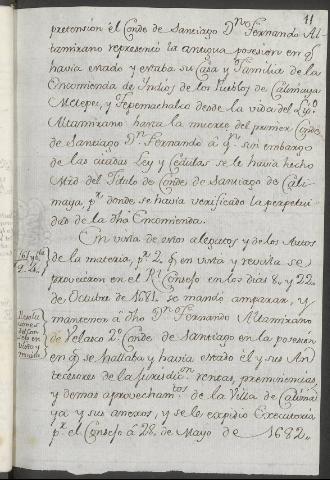 11
pretension el Conde de Santiago Dⁿ Fernando Al-
tamirano representó la antigua posesion en q̃
havia estado y estaba su Casa y Familia de la
Encomienda de Indios de los Pueblos de Calimaya
Metepec, y Tepemachalco desde la vida del Liz.do
Altamirano hasta la muerte del primer Conde
de Santiago Dⁿ Fernando á qⁿ sin embargo
de las citadas Ley y Cedulas se le havia hecho
Mrd del Titulo de Conde de Santiago de Cali-
maya, pʳ donde se havia verificado la perpetui-
dad de la dhã Encomienda.
En vista de estos alegatos y de los Autos
de la materia, pʳ 2. q̃ en vista y revista se
proveieron en el Rˡ Consejo en los dias 8. y 22.
de Octubre de 1681. se mandó amparar, y
mantener á dhõ Dⁿ Fernando Altamirano
de Velasco 2º Conde de Santiago en la posesión
en q̃ se hallaba y havia estado él y sus An-
tecesores de la Jurisdicⁿ rentas, preminencias,
y demas aprovecham.tos de la Villa de Calima-
ya y sus anexos, y se le expidió Executoria
pʳ el Consejo á 28. de Mayo de 1682.
Resolu-
ciones
del Con-
sejo en
vista y
revista